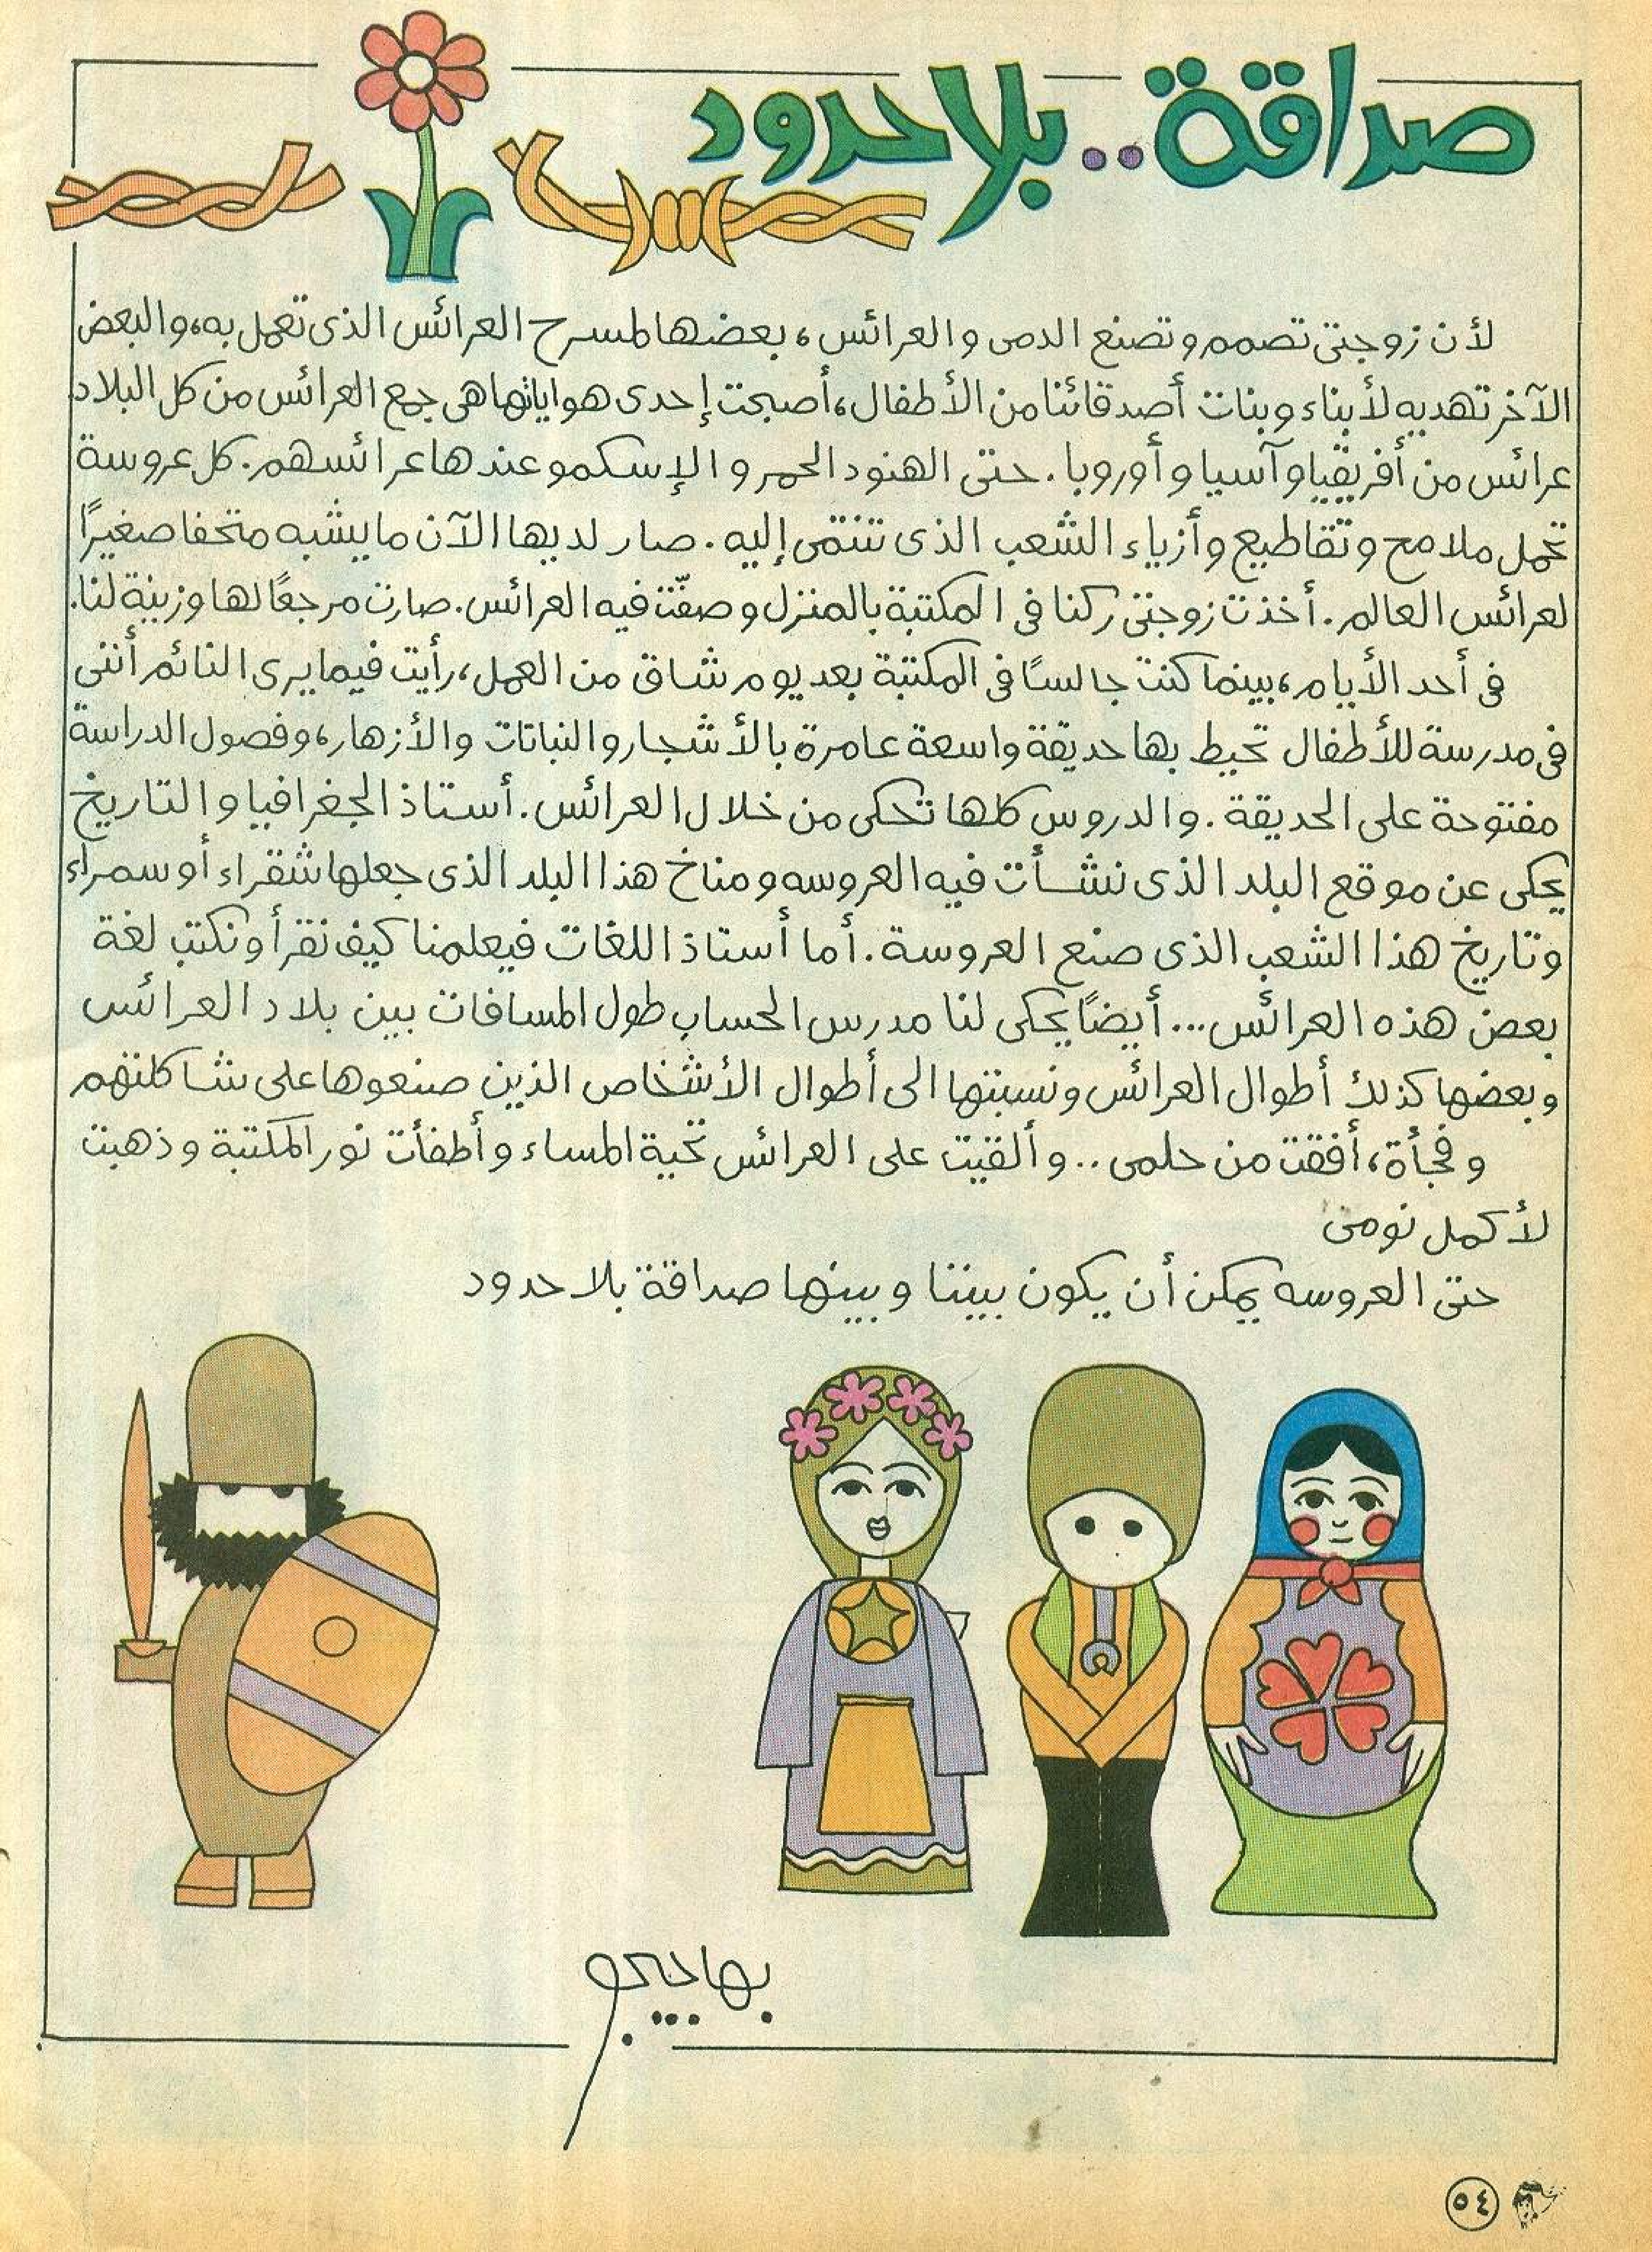 صداقة.. بلا حدود
لأن زوجتى تصمم وتصنع الدمى والعرائس، بعضها لمسرح العرائس الذى تعمل به، والبعض
الآخر تهديه لأبناء وبنات أصدقائنا من الأطفال، أصبحت إحدى هواياتها هى جمع العرائس من كل البلاد
عرائس من أفريقيا وآسيا وأوروبا. حتى الهنود الحمر والإسكمو عندها عرائسهم. كل عروسة
تحمل ملامح وتقاطيع وأزياء الشعب الذى تنتمى إليه. صار لديها الآن ما يشبه متحفا صغيرًا
لعرائس العالم. أخذت زوجتى ركنا فى المكتبة بالمنزل وصفّت فيه العرائس. صارت مرجعًا لها وزينة لنا.
فى أحد الأيام، بينما كنت جالسًا فى المكتبة بعد يوم شاق من العمل، رأيت فيما يرى النائم أننى
فى مدرسة للأطفال تحيط بها حديقة واسعة عامرة بالأشجار والنباتات والأزهار، وفصول الدراسة
مفتوحة على الحديقة. والدروس كلها تحكى من خلال العرائس. أستاذ الجغرافيا والتاريخ
يحكى عن موقع البلد الذى نشأت فيه العروسه ومناخ هذا البلد الذى جعلها شقراء أو سمراء
وتاريخ هذا الشعب الذى صنع العروسة. أما أستاذ اللغات فيعلمنا كيف نقرأ ونكتب لغة
بعض هذه العرائس... أيضًا يحكى لنا مدرس الحساب طول المسافات بين بلاد العرائس
وبعضها كذلك أطوال العرائس ونسبتها الى أطوال الأشخاص الذين صنعوها على شاكلتهم
وفجأة، أفقت من حلمى.. وألقيت على العرائس تحية المساء وأطفأت نور المكتبة وذهبت
لأكمل نومى
حتى العروسه يمكن أن يكون بيننا وبينها صداقة بلا حدود
٥٤